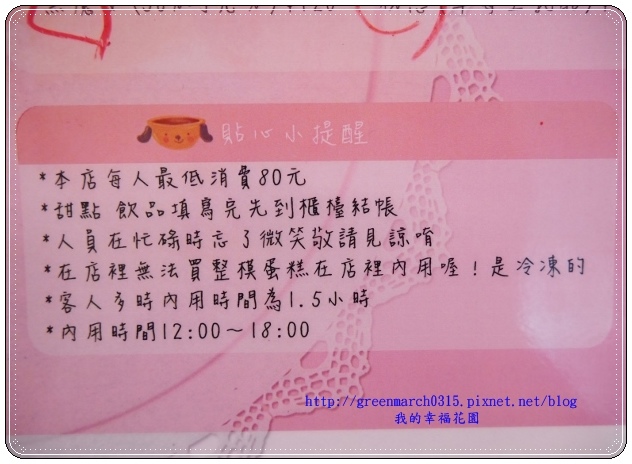 貼心小提醒
*本店每人最低消費80元
*甜點 飲品填寫完先到櫃檯結帳
*人員在忙碌時忘了微笑敬請見諒唷
*在店裡無法買整模蛋糕在店裡內用喔！是冷凍的
*客人多時內用時間為1.5小時
*內用時間12:00～18:00
http://greenmarch0315.pixnet.net/blog
我的幸福花園